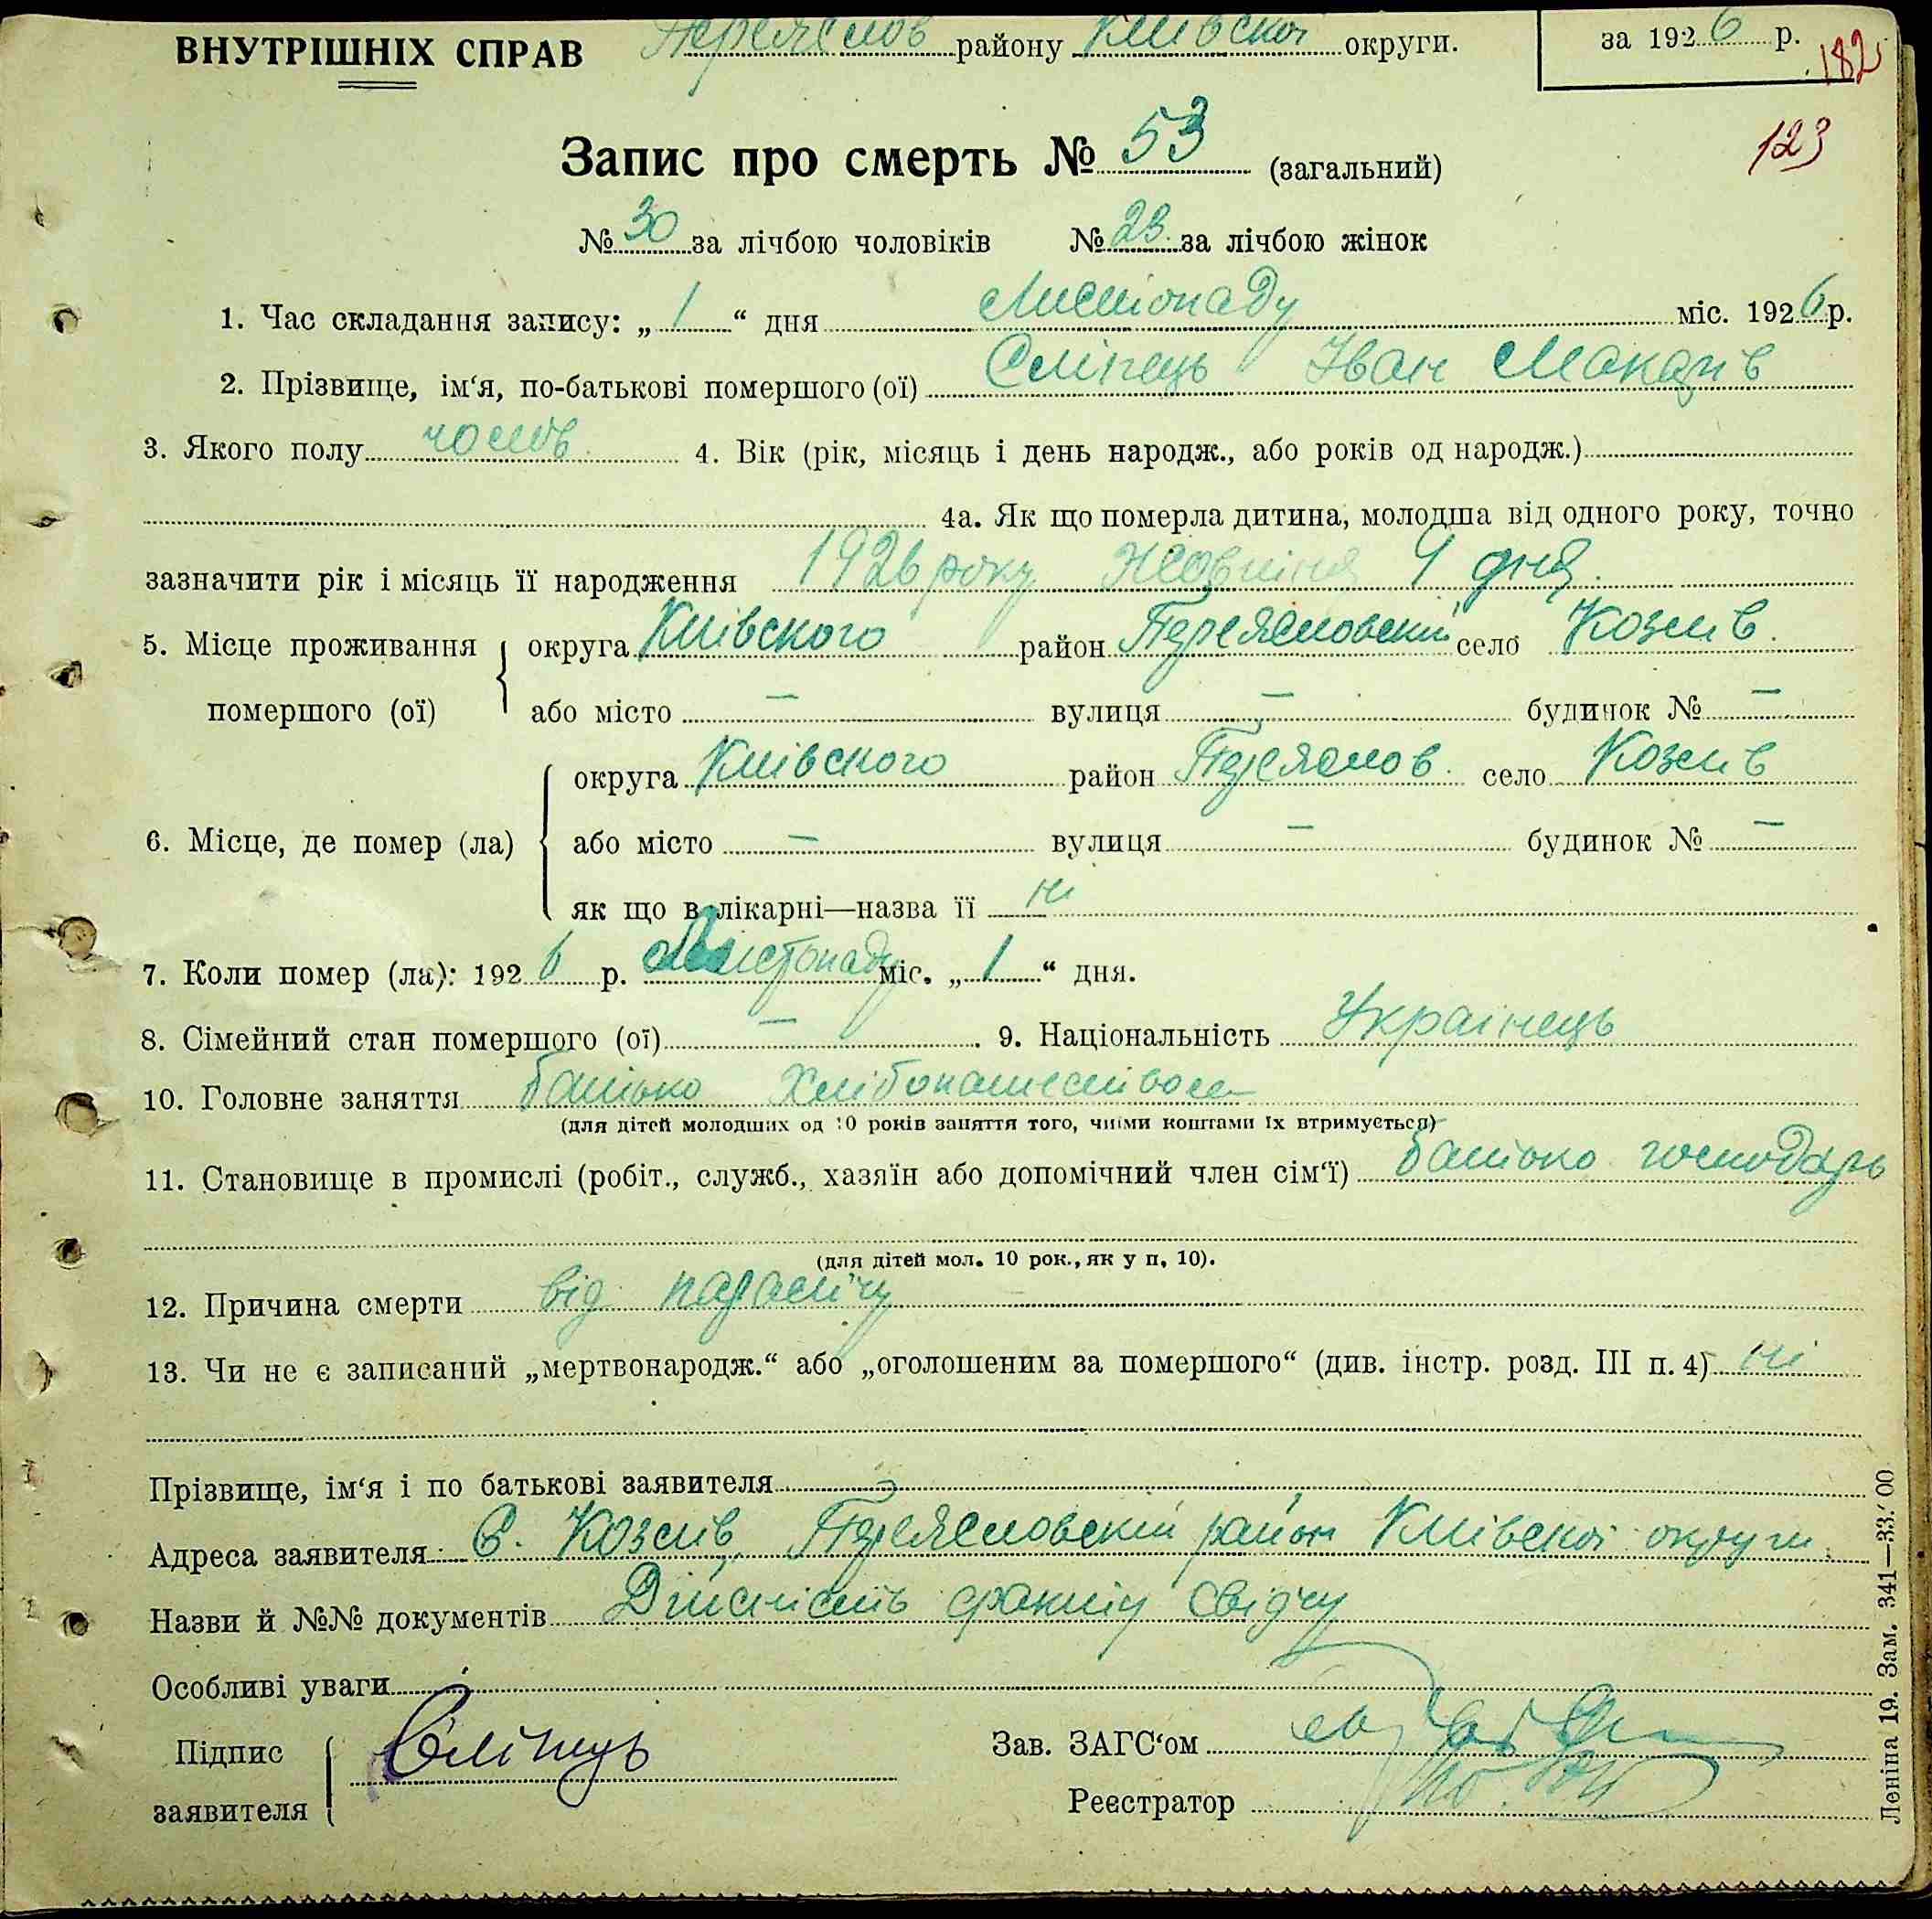 ВНУТРІШНІХ СПРАВ Переяслов району Київскої округи. за 1926 р.
182
Запис про смерть № 53 (загальний)
123
№ 30 за лічбою чоловіків № 23 за лічбою жінок
1. Час складання запису: „ 1 “ дня Листопаду міс. 1926 р.
2. Прізвище, ім‘я, по-батькові помершого (ої) Сліпець Іван Макарів
3. Якого полу чолов. 4. Вік (рік, місяць і день народж., або років од народж.)
4а. Як що померла дитина, молодша від одного року, точно
зазначити рік і місяць її народження 1926 року Жовтня 9 дня.
5. Місце проживання округа Київского район Переясловский село Козлів.
помершого (ої) або місто — вулиця — будинок № —
округа Київского район Переяслов. село Козлів
6. Місце, де помер (ла) або місто — вулиця — будинок № —
як що в лікарні—назва її ні
7. Коли помер (ла): 1926 р. Листопаду міс. „ 1 “ дня.
8. Сімейний стан помершого (ої) — . 9. Національність Українець
10. Головне заняття батько Хлібопашеством
(для дітей молодших од 10 років заняття того, чиїми коштами їх втримується)
11. Становище в промислі (робіт., служб., хазяїн або допомічний член сім‘ї) батько господарь
(для дітей мол. 10 рок., як у п. 10).
12. Причина смерти від паралічу
13. Чи не є записаний „мертвонародж.“ або „оголошеним за помершого“ (див. інстр. розд. III п. 4) ні
Прізвище, ім‘я і по батькові заявителя
Адреса заявителя С. Козлів, Переясловский район Київскої округи.
Назви й №№ документів Дійсність факту свідчу
Особливі уваги
Підпис Сліпець Зав. ЗАГС‘ом
заявителя Реєстратор
Леніна 19. Зам. 341—33.′00